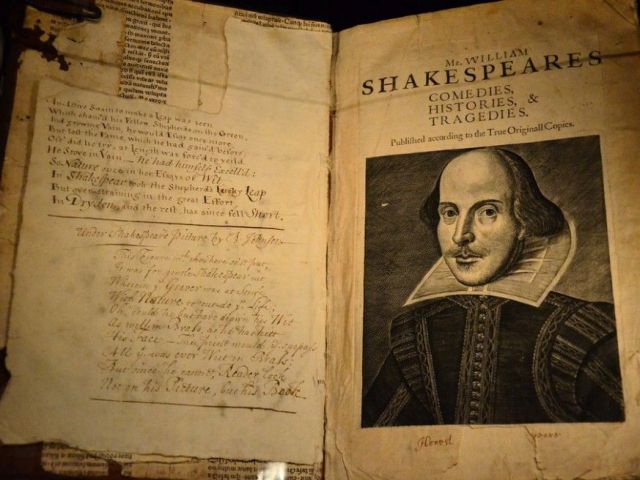 Swain to make a Leap was seen
Which sham'd his Fellow Shepherds on the Green,
And growing Vain, he would Essay once more,
But lost the Fame, which he had gain'd before;
Oft' did he try, at Length was forc'd to yeild.
He Strove in Vain — he had himself Excell'd:
So Nature once in her Essays of Wit,
In Shakespear took the Shepherd's Lucky Leap
But over-straining in the great Effort,
In Dryden, and the rest, has since fell Short.
Under Shakespeare Picture by B. Johnson
This Figure here seest put
It was for gentle Shakespear cut
Wherein y Graver was at strife
With Nature to outdoo y Life:
Oh, could he but have drawn his Wit
As well in Brass, as he has hitt
His Face — the print would y surpass
All y was ever Writ in Brass.
But since he cannot, Reader look
Not on his Picture, but his Book
MR. WILLIAM
SHAKESPEARES
COMEDIES,
HISTORIES, &
TRAGEDIES.
Published according to the True Originall Copies.